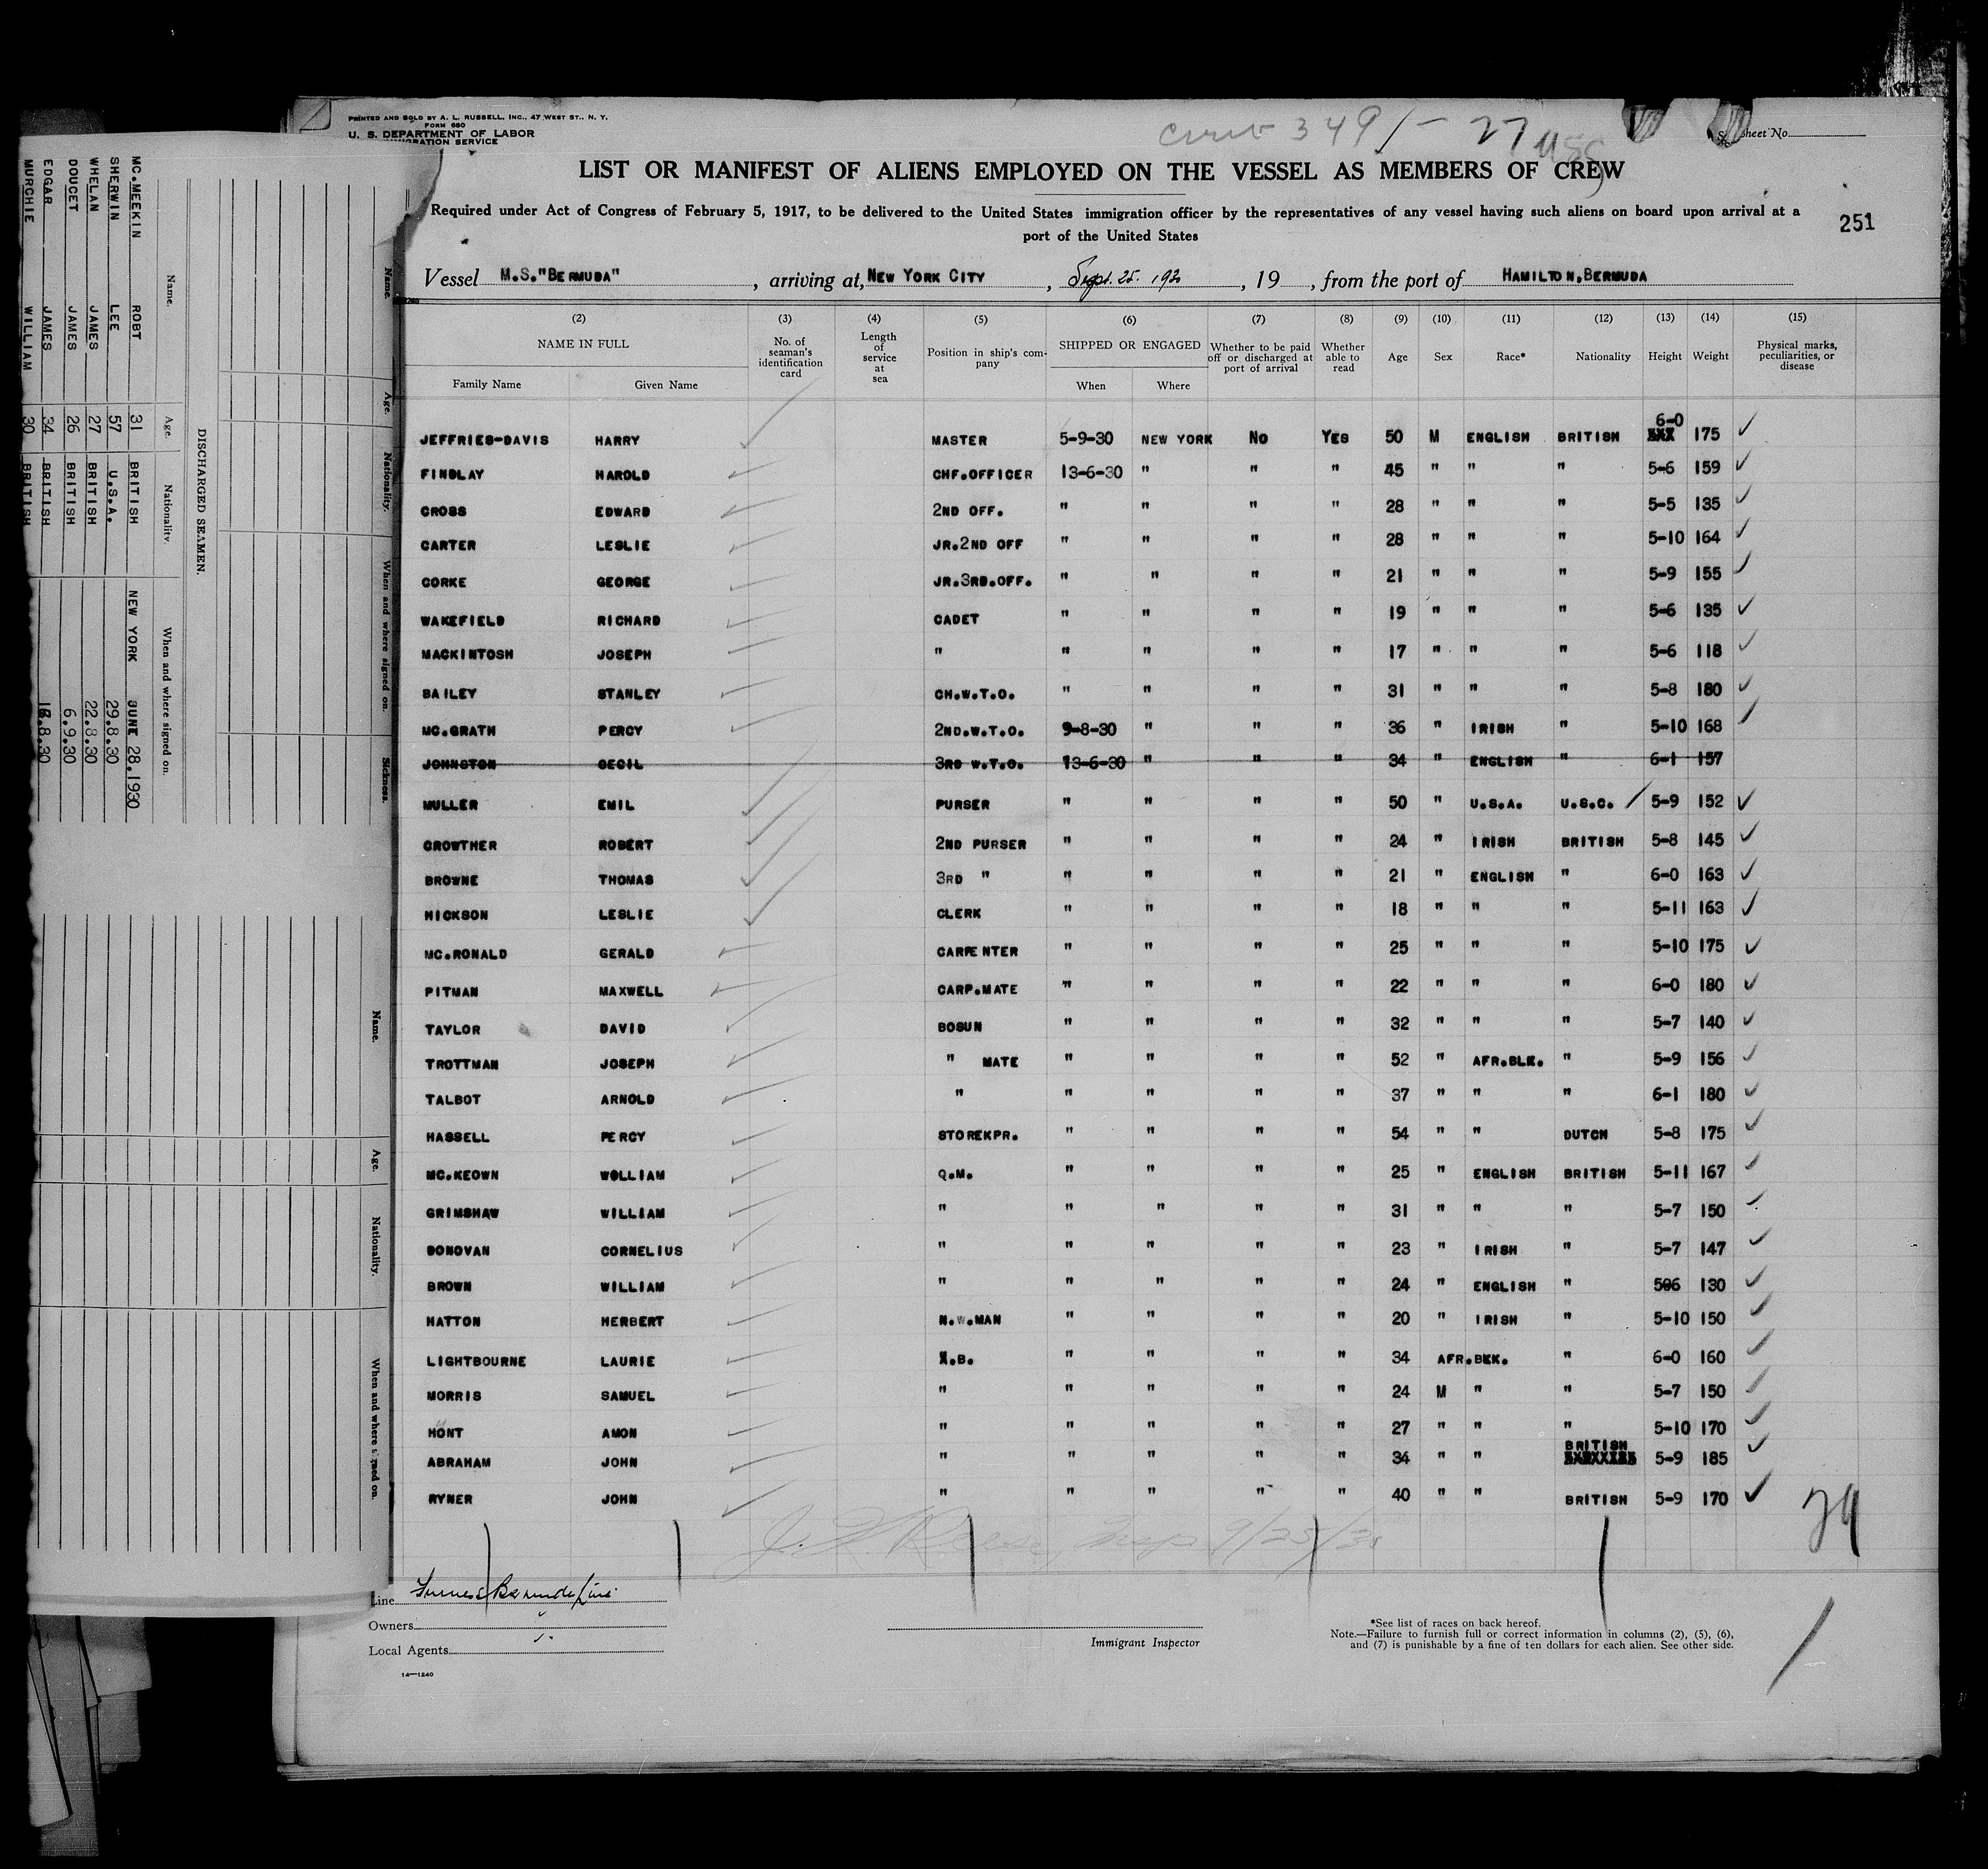 PRINTED AND SOLD BY A. L. RUSSELL, INC., 47 WEST ST., N. Y.
FORM 680
U. S. DEPARTMENT OF LABOR
IMMIGRATION SERVICE
349/- 27
Sheet No.
LIST OR MANIFEST OF ALIENS EMPLOYED ON THE VESSEL AS MEMBERS OF CREW
Required under Act of Congress of February 5, 1917, to be delivered to the United States immigration officer by the representatives of any vessel having such aliens on board upon arrival at a
port of the United States
251
Vessel M.S."BERMUDA", arriving at, NEW YORK CITY, Sept. 25. 1930, 19 , from the port of HAMILTON,BERMUDA
(2) (3) (4) (5) (6) (7) (8) (9) (10) (11) (12) (13) (14) (15)
NAME IN FULL No. of seaman's identification card Length of service at sea Position in ship's company SHIPPED OR ENGAGED Whether to be paid off or discharged at port of arrival Whether able to read Age Sex Race* Nationality Height Weight Physical marks, peculiarities, or disease
Family Name Given Name When Where
JEFFRIES-DAVIS HARRY MASTER 5-9-30 NEW YORK No YES 50 M ENGLISH BRITISH 6-0 175
FINDLAY HAROLD CHF.OFFICER 13-6-30 " " " 45 " " " 5-6 159
CROSS EDWARD 2ND OFF. " " " " 28 " " " 5-5 135
CARTER LESLIE JR.2ND OFF " " " " 28 " " " 5-10 164
CORKE GEORGE JR.3RD.OFF. " " " " 21 " " " 5-9 155
WAKEFIELD RICHARD CADET " " " " 19 " " " 5-6 135
MACKINTOSH JOSEPH " " " " " 17 " " " 5-6 118
BAILEY STANLEY CH.W.T.O. " " " " 31 " " " 5-8 180
MC.GRATH PERCY 2ND.W.T.O. 9-8-30 " " " 36 " IRISH " 5-10 168
JOHNSTON CECIL 3RD W.T.O. 13-6-30 " " " 34 " ENGLISH " 6-1 157
MULLER EMIL PURSER " " " " 50 " U.S.A. U.S.C. 5-9 152
CROWTHER ROBERT 2ND PURSER " " " " 24 " IRISH BRITISH 5-8 145
BROWNE THOMAS 3RD " " " " " 21 " ENGLISH " 6-0 163
HICKSON LESLIE CLERK " " " " 18 " " " 5-11 163
MC.RONALD GERALD CARPENTER " " " " 25 " " " 5-10 175
PITMAN MAXWELL CARP.MATE " " " " 22 " " " 6-0 180
TAYLOR DAVID BOSUN " " " " 32 " " " 5-7 140
TROTTMAN JOSEPH " MATE " " " " 52 " AFR.BLK. " 5-9 156
TALBOT ARNOLD " " " " " 37 " " " 6-1 180
HASSELL PERCY STOREKPR. " " " " 54 " " DUTCH 5-8 175
MC.KEOWN WOLLIAM Q.M. " " " " 25 " ENGLISH BRITISH 5-11 167
GRIMSHAW WILLIAM " " " " " 31 " " " 5-7 150
DONOVAN CORNELIUS " " " " " 23 " IRISH " 5-7 147
BROWN WILLIAM " " " " " 24 " ENGLISH " 506 130
HATTON HERBERT N.W.MAN " " " " 20 " IRISH " 5-10 150
LIGHTBOURNE LAURIE A.B. " " " " 34 AFR.BKK. " 6-0 160
MORRIS SAMUEL " " " " " 24 M " " 5-7 150
HONT AMON " " " " " 27 " " " 5-10 170
ABRAHAM JOHN " " " " " 34 " " BRITISH 5-9 185
RYNER JOHN " " " " " 40 " " BRITISH 5-9 170
29
9/25/30
Line Furness Bermuda Line
Owners "
Local Agents "
Immigrant Inspector
*See list of races on back hereof.
Note.—Failure to furnish full or correct information in columns (2), (5), (6),
and (7) is punishable by a fine of ten dollars for each alien. See other side.
14—1240
Name. Age. Nationality. When and where signed on. Sickness.
DISCHARGED SEAMEN.
Name. Age. Nationality. When and where signed on.
MC.MEEKIN ROBT 31 BRITISH NEW YORK JUNE 28.1930
SHERWIN LEE 57 U.S.A. 29.8.30
WHELAN JAMES 27 BRITISH 22.8.30
DOUCET JAMES 26 BRITISH 6.9.30
EDGAR JAMES 34 BRITISH 16.8.30
MURCHIE WILLIAM 30 BRITISH
Name. Age. Nationality. When and where signed on.